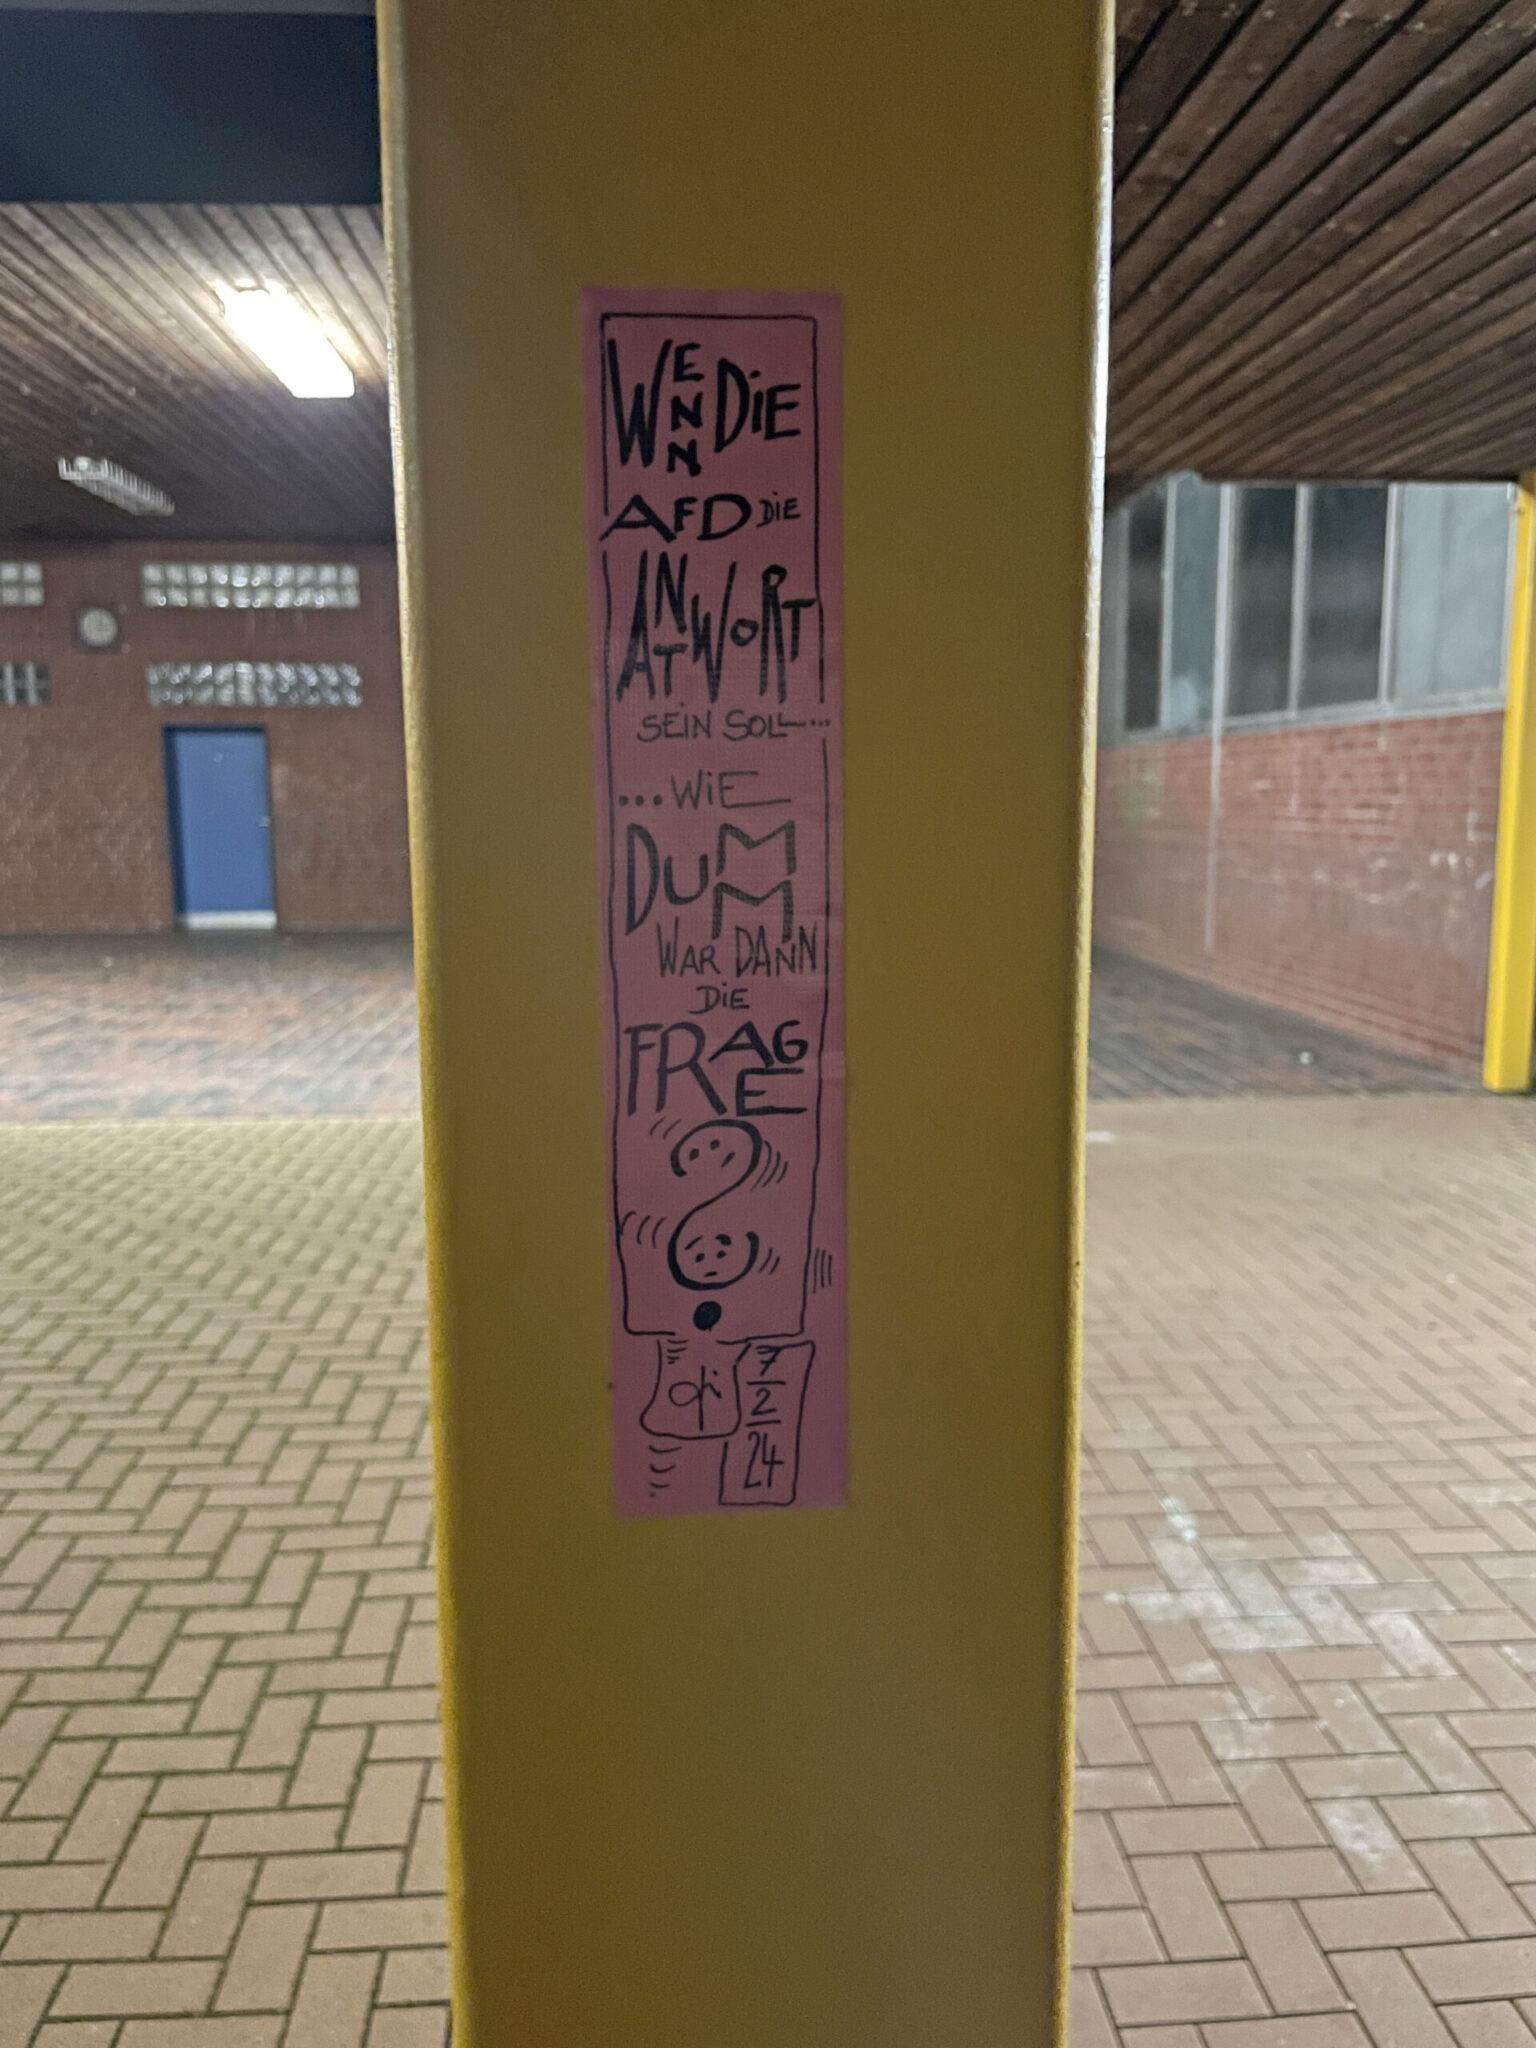 WENN DiE
AFD DiE
ANTWORT
SEiN SOLL...
...WiE
DUMM
WAR DANN
DiE
FRAGE
?
7/2/24